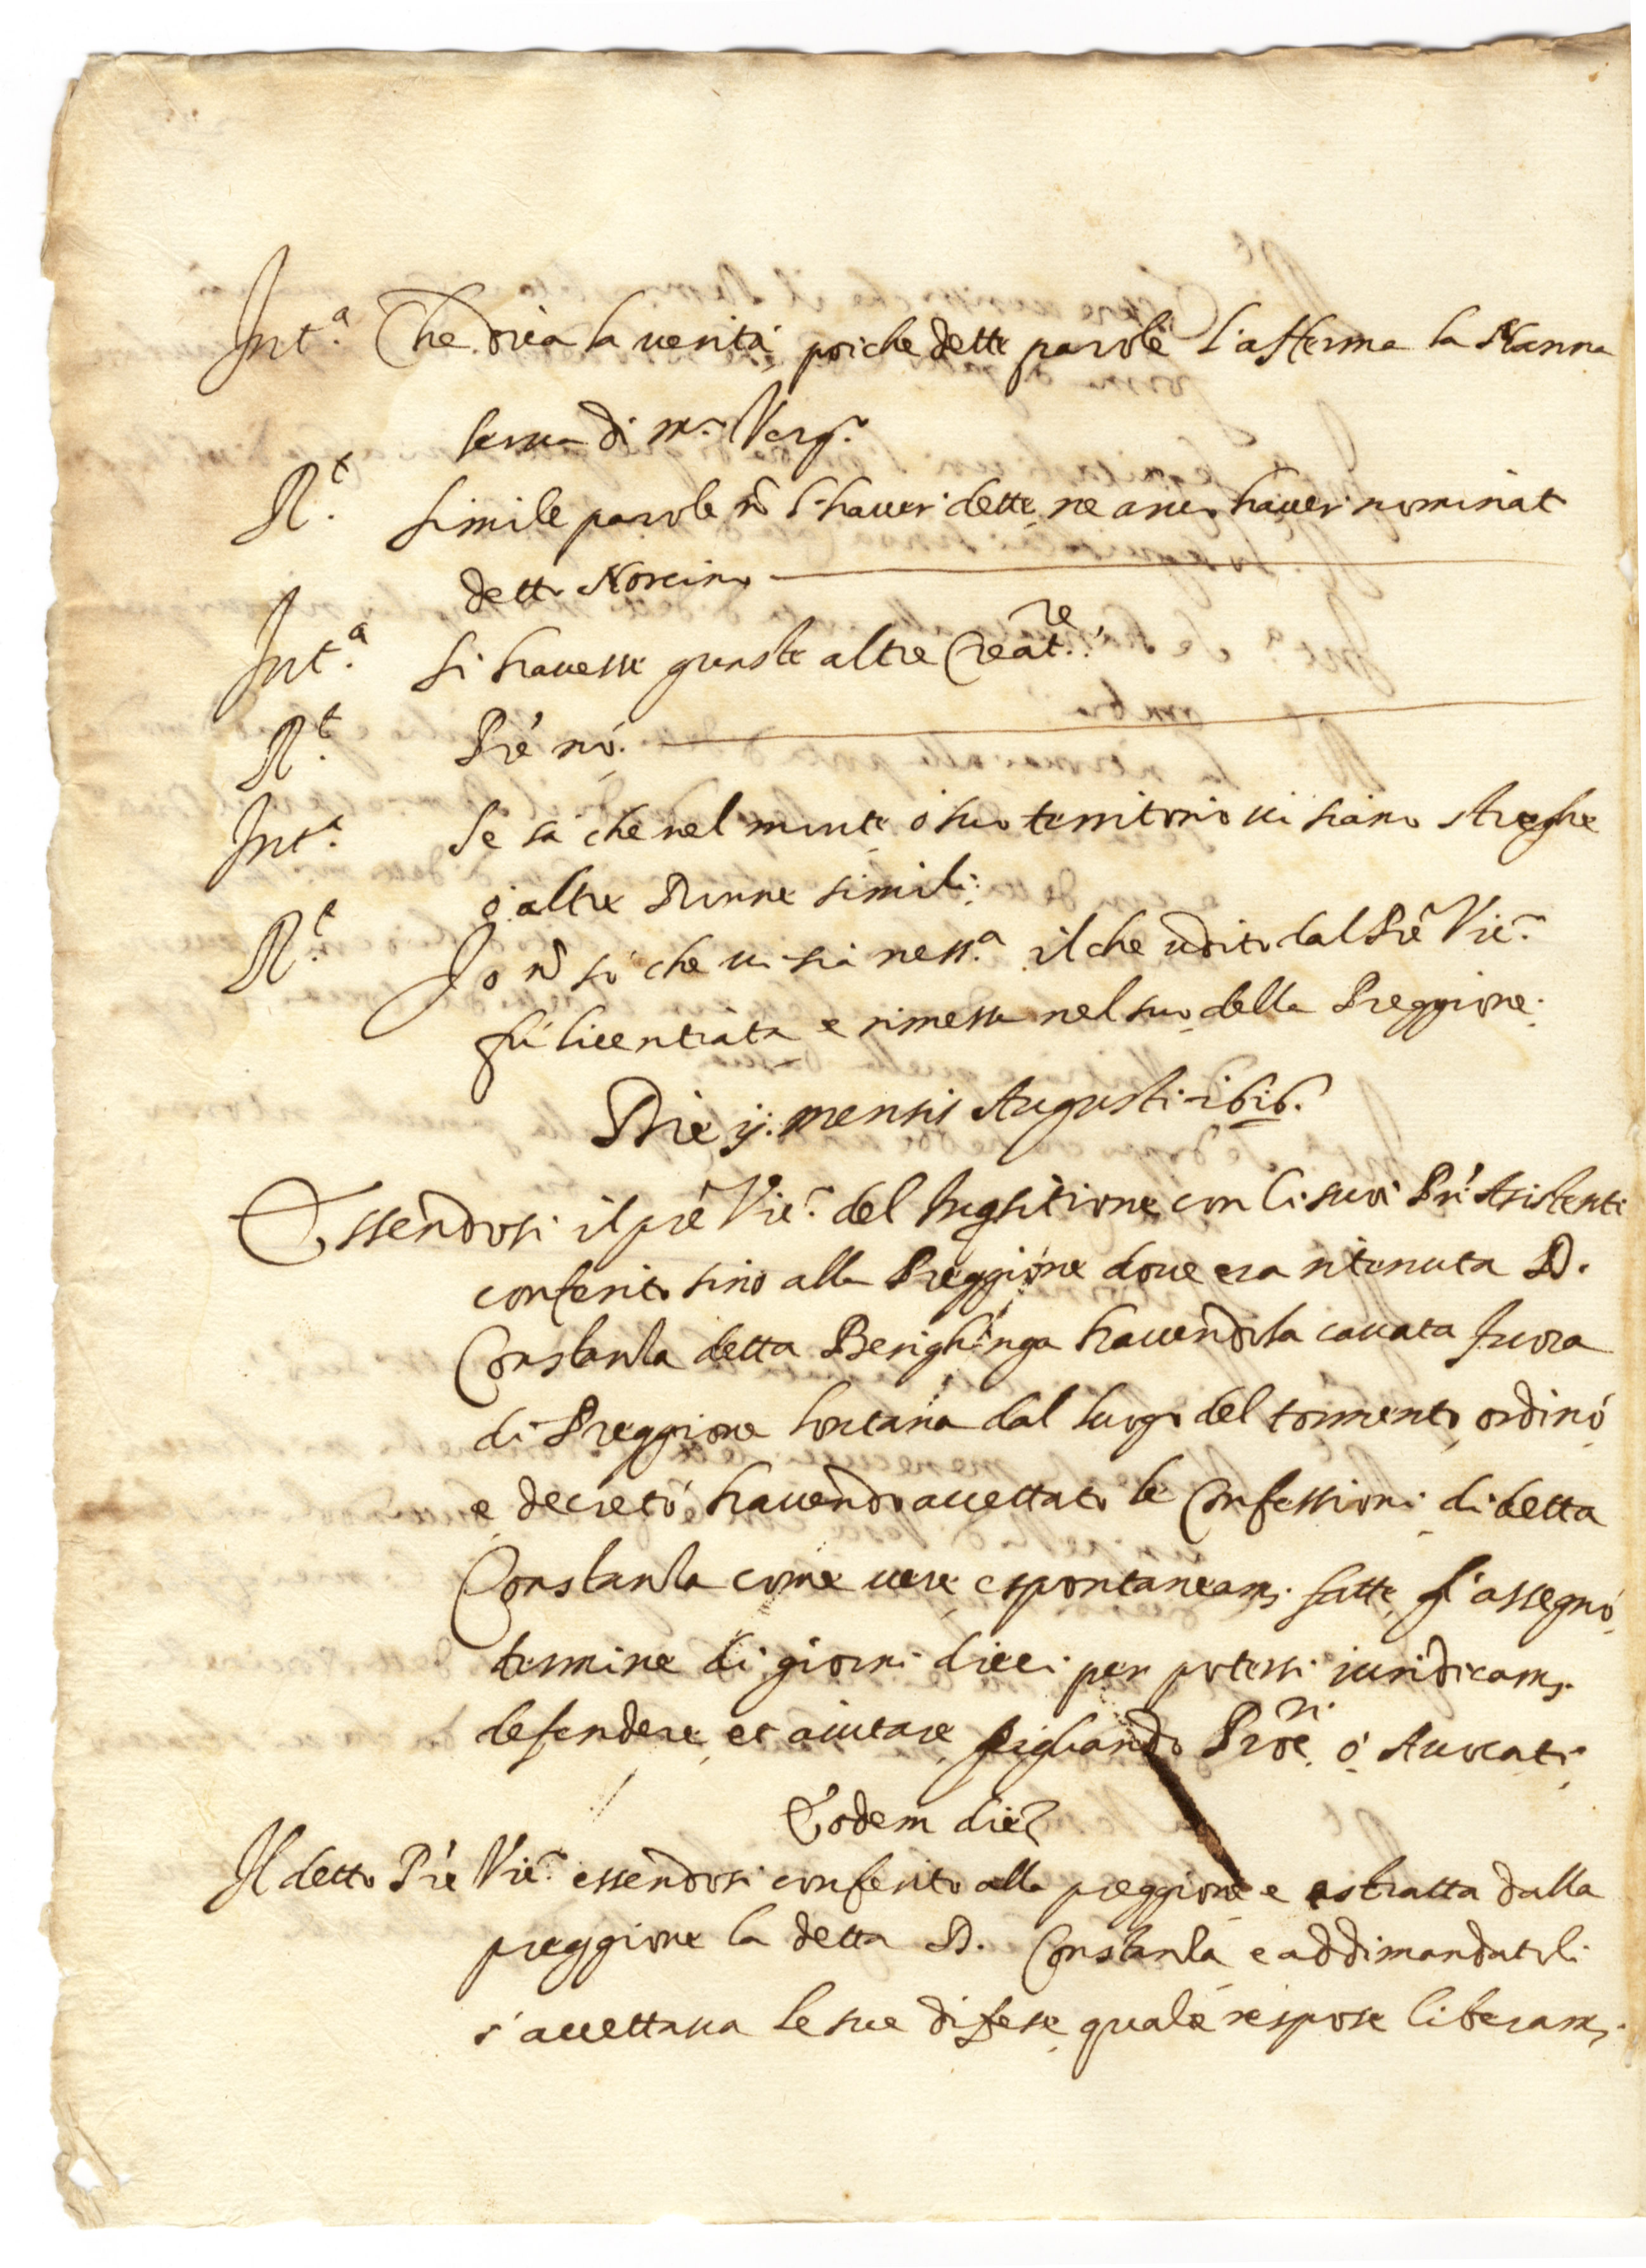 Int.ᵃ Che dica la uerità, poiche dette parole l'afferma la Nanna
serua di m.ʳ Verg.ᵒ
R.ᵗ simile parole nō l'hauer dette, ne anco hauer nominat
detto Norcino
Int.ᵃ Si hauesse guaste altre Creat.ʳᵉ
R.ᵗ P̃re nò.
Int.ᵃ Se sà che nel monte, ò suo territorio ui siano streghe
ò altre Donne simili.
R.ᵗ Io nō sò che ui sia ness.ᵃ il che udito dal P̃re Vic.º
fù licentiata e rimessa nel suo della Preggione.
Die ij. mensis Augusti i6i6.
Essendosi il p̃re Vic.º del Inqsitione con li suoi Pri Asistenti
conferito sino alla Preggione doue era ritenuta D.
Constanza detta Berighinga hauendola cauata fuora
di Preggione lontana dal luogo del tormento, ordinò
e decretò hauendo accettato le Confessioni di detta
Constanza come uere, e spontaneam.ᵉ fatte, gl'assegnò
termine di giorni dieci per potersi iuridicam.ᵉ
defendere, et aiutare, pigliando Proc.ʳⁱ ò Auocati.
Eodem die
Il detto P̃re Vic.º essendosi conferito alla preggione e estratta dalla
preggione la detta D. Constanza e addimandatoli
s'accettaua le sue difese, quale respose liberam.ᵉ